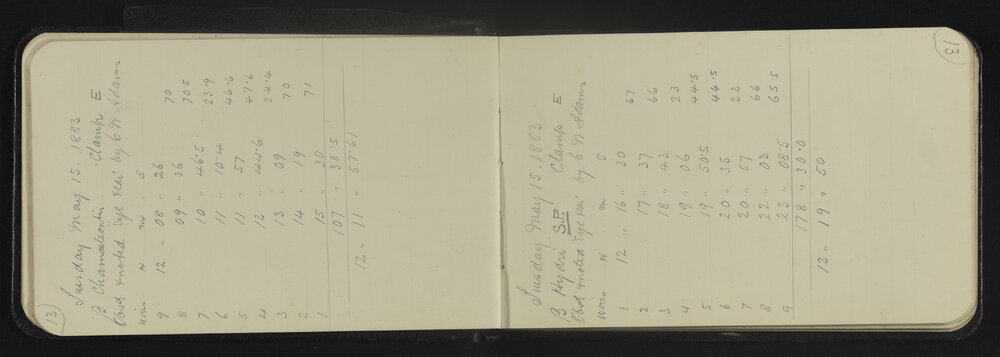 13
Tuesday May 15. 1883
β Chamaeleontis Clamp E
Obsd & noted Eye & Ear by C N Adams
Wires H m s
9 12 " 08 " 26 70
8 09 " 36 70.5
7 10 " 46.5 23.9
6 11 " 10.4 46.6
5 11 " 57 47.6
4 12 " 44.6 24.4
3 13 " 09 70
2 14 " 19 71
1 15 " 30
107 " 38.5
12 " 11 " 57.61
13
Tuesday May 15. 1883
β Hydri S.P. Clamp E
Obsd & noted Eye & Ear by C N Adams
Wires H m s
1 12 " 16 " 30 67
2 17 " 37 66
3 18 " 43 23
4 19 " 06 44.5
5 19 " 50.5 44.5
6 20 " 35 22
7 20 " 57 66
8 22 " 03 65.5
9 23 " 08.5
178 " 30.0
12 " 19 " 50